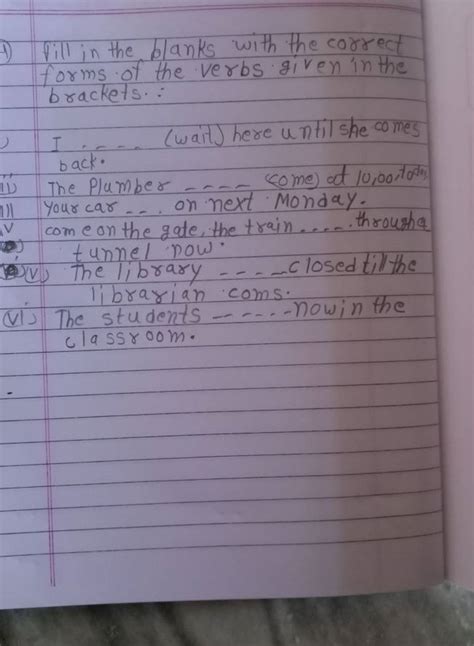 fill in the blanks with the correct
forms of the verbs given in the
brackets. :
I ..... (wait) here until she comes
back.
ii) The Plumber ---- (come) at 10,00, today
iii Your car --.. on next Monday.
iv come on the gate, the train ..... through a
tunnel now.
(v) The library ----- closed till the
librarian coms.
(vi) The students ------ now in the
classroom.